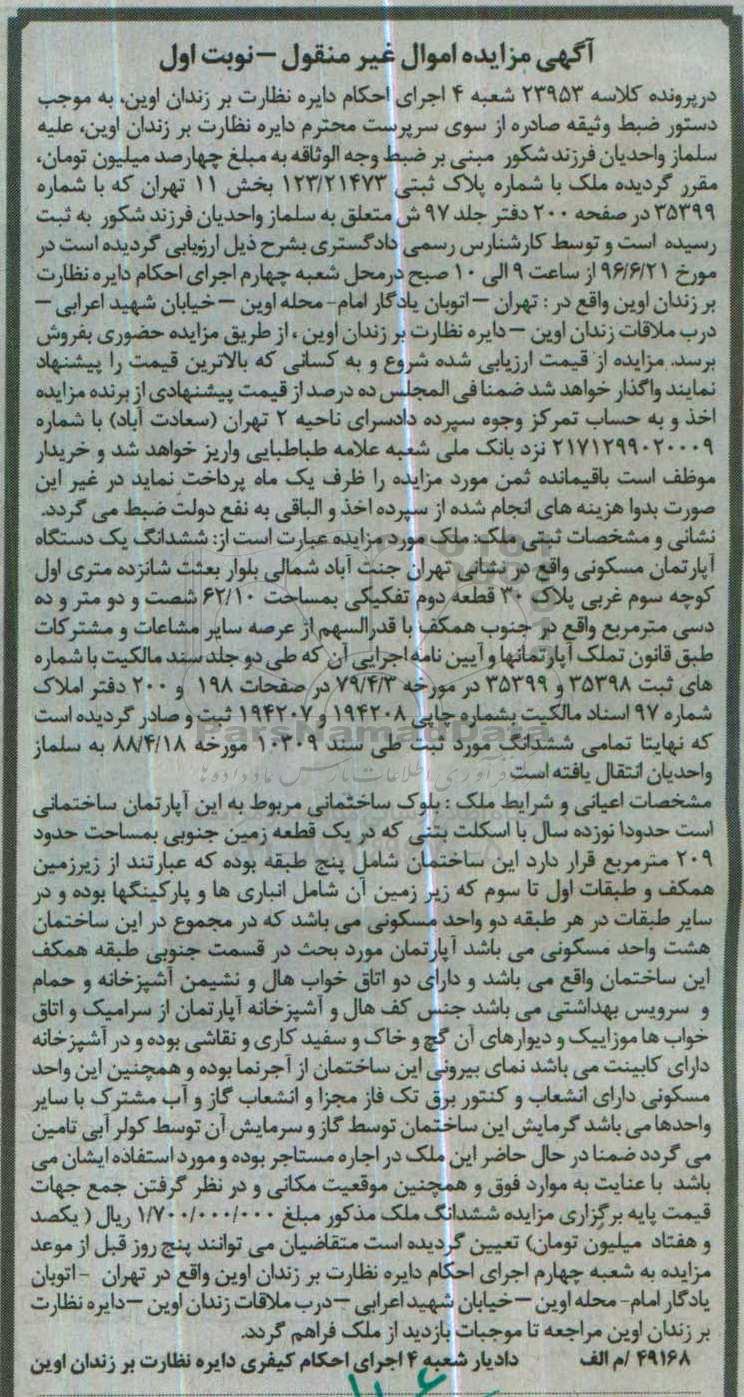 آگهی مزایده اموال غیر منقول – نوبت اول
درپرونده کلاسه ۲۳۹۵۳ شعبه ۴ اجرای احکام دایره نظارت بر زندان اوین، به موجب
دستور ضبط وثیقه صادره از سوی سرپرست محترم دایره نظارت بر زندان اوین، علیه
سلماز واحدیان فرزند شکور مبنی بر ضبط وجه الوثاقه به مبلغ چهارصد میلیون تومان،
مقرر گردیده ملک با شماره پلاک ثبتی ۱۲۳/۲۱۴۷۳ بخش ۱۱ تهران که با شماره
۳۵۳۹۹ در صفحه ۲۰۰ دفتر جلد ۹۷ ش متعلق به سلماز واحدیان فرزند شکور به ثبت
رسیده است و توسط کارشنارس رسمی دادگستری بشرح ذیل ارزیابی گردیده است در
مورخ ۹۶/۶/۲۱ از ساعت ۹ الی ۱۰ صبح درمحل شعبه چهارم اجرای احکام دایره نظارت
بر زندان اوین واقع در : تهران – اتوبان یادگار امام- محله اوین – خیابان شهید اعرابی –
درب ملاقات زندان اوین – دایره نظارت بر زندان اوین ، از طریق مزایده حضوری بفروش
برسد. مزایده از قیمت ارزیابی شده شروع و به کسانی که بالاترین قیمت را پیشنهاد
نمایند واگذار خواهد شد ضمنا فی المجلس ده درصد از قیمت پیشنهادی از برنده مزایده
اخذ و به حساب تمرکز وجوه سپرده دادسرای ناحیه ۲ تهران (سعادت آباد) با شماره
۲۱۷۱۲۹۹۰۲۰۰۰۹ نزد بانک ملی شعبه علامه طباطبایی واریز خواهد شد و خریدار
موظف است باقیمانده ثمن مورد مزایده را ظرف یک ماه پرداخت نماید در غیر این
صورت بدوا هزینه های انجام شده از سپرده اخذ و الباقی به نفع دولت ضبط می گردد.
نشانی و مشخصات ثبتی ملک: ملک مورد مزایده عبارت است از: ششدانگ یک دستگاه
آپارتمان مسکونی واقع در نشانی تهران جنت آباد شمالی بلوار بعثت شانزده متری اول
کوچه سوم غربی پلاک ۳۰ قطعه دوم تفکیکی بمساحت ۶۲/۱۰ شصت و دو متر و ده
دسی مترمربع واقع در جنوب همکف با قدرالسهم از عرصه سایر مشاعات و مشترکات
طبق قانون تملک آپارتمانها و آیین نامه اجرایی آن که طی دو جلد سند مالکیت با شماره
های ثبت ۳۵۳۹۸ و ۳۵۳۹۹ در مورخه ۷۹/۴/۳ در صفحات ۱۹۸ و ۲۰۰ دفتر املاک
شماره ۹۷ اسناد مالکیت بشماره چاپی ۱۹۴۲۰۸ و ۱۹۴۲۰۷ ثبت و صادر گردیده است
که نهایتا تمامی ششدانگ مورد ثبت طی سند ۱۰۳۰۹ مورخه ۸۸/۴/۱۸ به سلماز
واحدیان انتقال یافته است
مشخصات اعیانی و شرایط ملک : بلوک ساختمانی مربوط به این آپارتمان ساختمانی
است حدودا نوزده سال با اسکلت بتنی که در یک قطعه زمین جنوبی بمساحت حدود
۲۰۹ مترمربع قرار دارد این ساختمان شامل پنج طبقه بوده که عبارتند از زیرزمین
همکف و طبقات اول تا سوم که زیر زمین آن شامل انباری ها و پارکینگها بوده و در
سایر طبقات در هر طبقه دو واحد مسکونی می باشد که در مجموع در این ساختمان
هشت واحد مسکونی می باشد آپارتمان مورد بحث در قسمت جنوبی طبقه همکف
این ساختمان واقع می باشد و دارای دو اتاق خواب هال و نشیمن آشپزخانه و حمام
و سرویس بهداشتی می باشد جنس کف هال و آشپزخانه آپارتمان از سرامیک و اتاق
خواب ها موزاییک و دیوارهای آن گچ و خاک و سفید کاری و نقاشی بوده و در آشپزخانه
دارای کابینت می باشد نمای بیرونی این ساختمان از آجرنما بوده و همچنین این واحد
مسکونی دارای انشعاب و کنتور برق تک فاز مجزا و انشعاب گاز و آب مشترک با سایر
واحدها می باشد گرمایش این ساختمان توسط گاز و سرمایش آن توسط کولر آبی تامین
می گردد ضمنا در حال حاضر این ملک در اجاره مستاجر بوده و مورد استفاده ایشان می
باشد با عنایت به موارد فوق و همچنین موقعیت مکانی و در نظر گرفتن جمع جهات
قیمت پایه برگزاری مزایده ششدانگ ملک مذکور مبلغ ۱/۷۰۰/۰۰۰/۰۰۰ ریال ( یکصد
و هفتاد میلیون تومان) تعیین گردیده است متقاضیان می توانند پنج روز قبل از موعد
مزایده به شعبه چهارم اجرای احکام دایره نظارت بر زندان اوین واقع در تهران – اتوبان
یادگار امام- محله اوین – خیابان شهید اعرابی – درب ملاقات زندان اوین – دایره نظارت
بر زندان اوین مراجعه تا موجبات بازدید از ملک فراهم گردد.
۴۹۱۶۸ /م الف دادیار شعبه ۴ اجرای احکام کیفری دایره نظارت بر زندان اوین
ParsNamadData